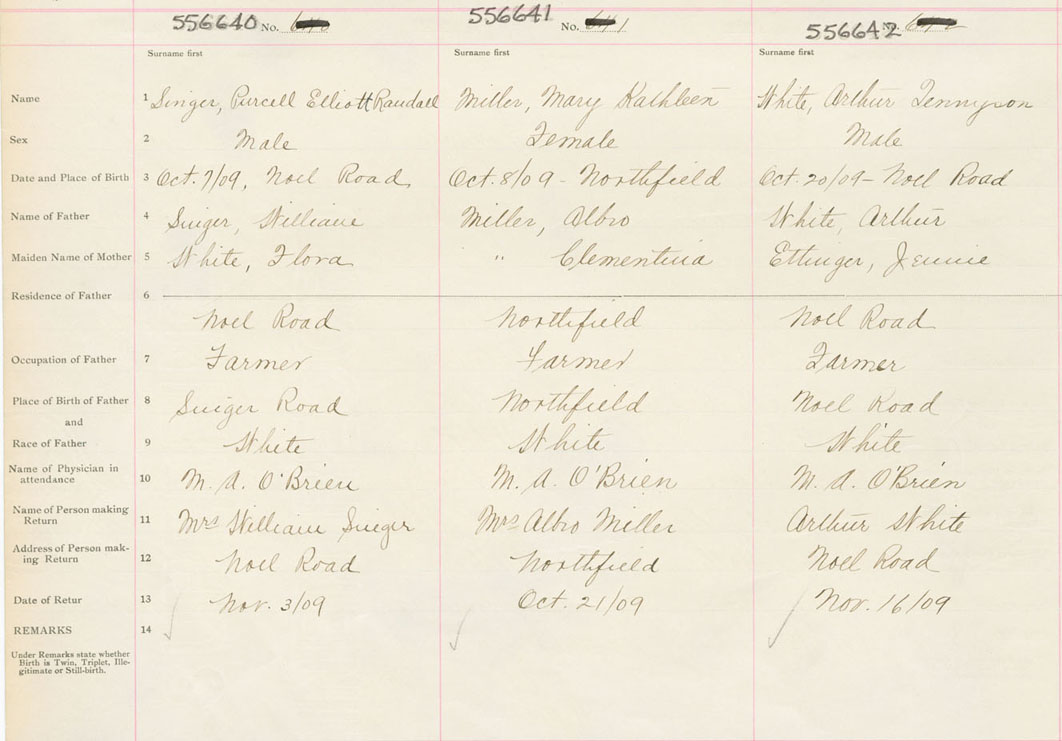 556640 No. 556641 No. 556642 No.
Surname first Surname first Surname first
Name 1 Singer, Purcell Elliott Randall Miller, Mary Kathleen White, Arthur Tennyson
Sex 2 Male Female Male
Date and Place of Birth 3 Oct. 7/09, Noel Road Oct. 8/09 - Northfield Oct. 20/09 - Noel Road
Name of Father 4 Singer, William Miller, Albro White, Arthur
Maiden Name of Mother 5 White, Flora " Clementina Ettinger, Jennie
Residence of Father 6
Noel Road Northfield Noel Road
Occupation of Father 7 Farmer Farmer Farmer
Place of Birth of Father 8 Singer Road Northfield Noel Road
and
Race of Father 9 White White White
Name of Physician in
attendance 10 M. A. O'Brien M. A. O'Brien M. A. O'Brien
Name of Person making
Return 11 Mrs William Singer Mrs Albro Miller Arthur White
Address of Person mak-
ing Return 12 Noel Road Northfield Noel Road
Date of Retur 13 Nov. 3/09 Oct. 21/09 Nov. 16/09
REMARKS 14
Under Remarks state whether
Birth is Twin, Triplet, Ille-
gitimate or Still-birth.